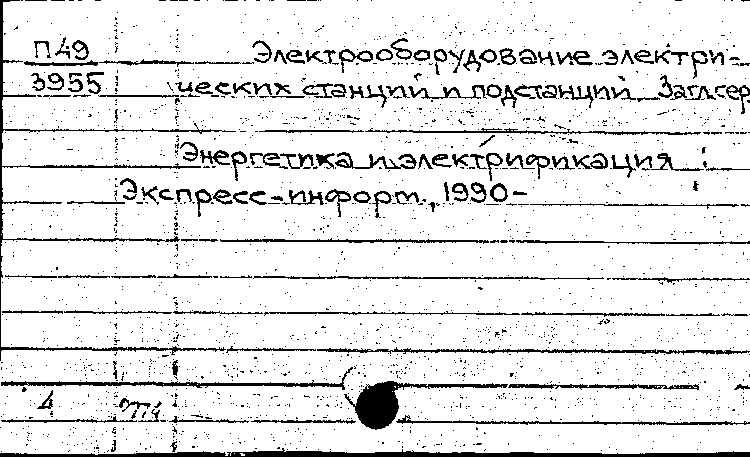 П49 Электрооборудование электри-
3955 ческих станций и подстанций. Загл.сер.
Энергетика и электрификация :
Экспресс-информ., 1990-
4